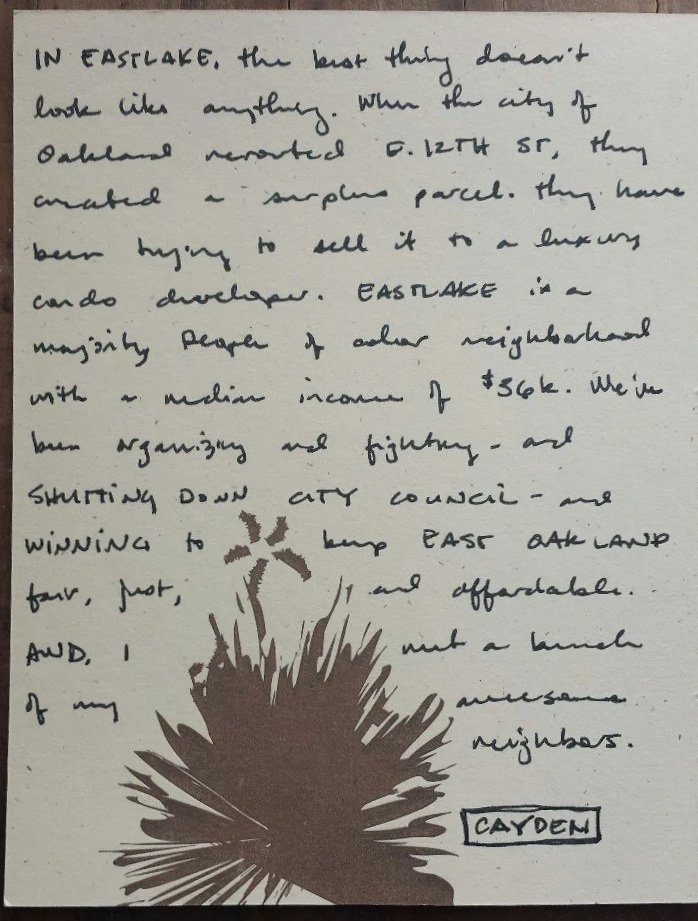 IN EASTLAKE, the best thing doesn't
look like anything. When the city of
Oakland rerouted E. 12TH ST, they
created a surplus parcel. They have
been trying to sell it to a luxury
condo developer. EASTLAKE is a
majority People of color neighborhood
with a median income of $36k. We've
been organizing and fighting - and
SHUTTING DOWN CITY COUNCIL - and
WINNING to keep EAST OAKLAND
fair, just, and affordable.
AND, I met a bunch
of my awesome
neighbors.
CAYDEN